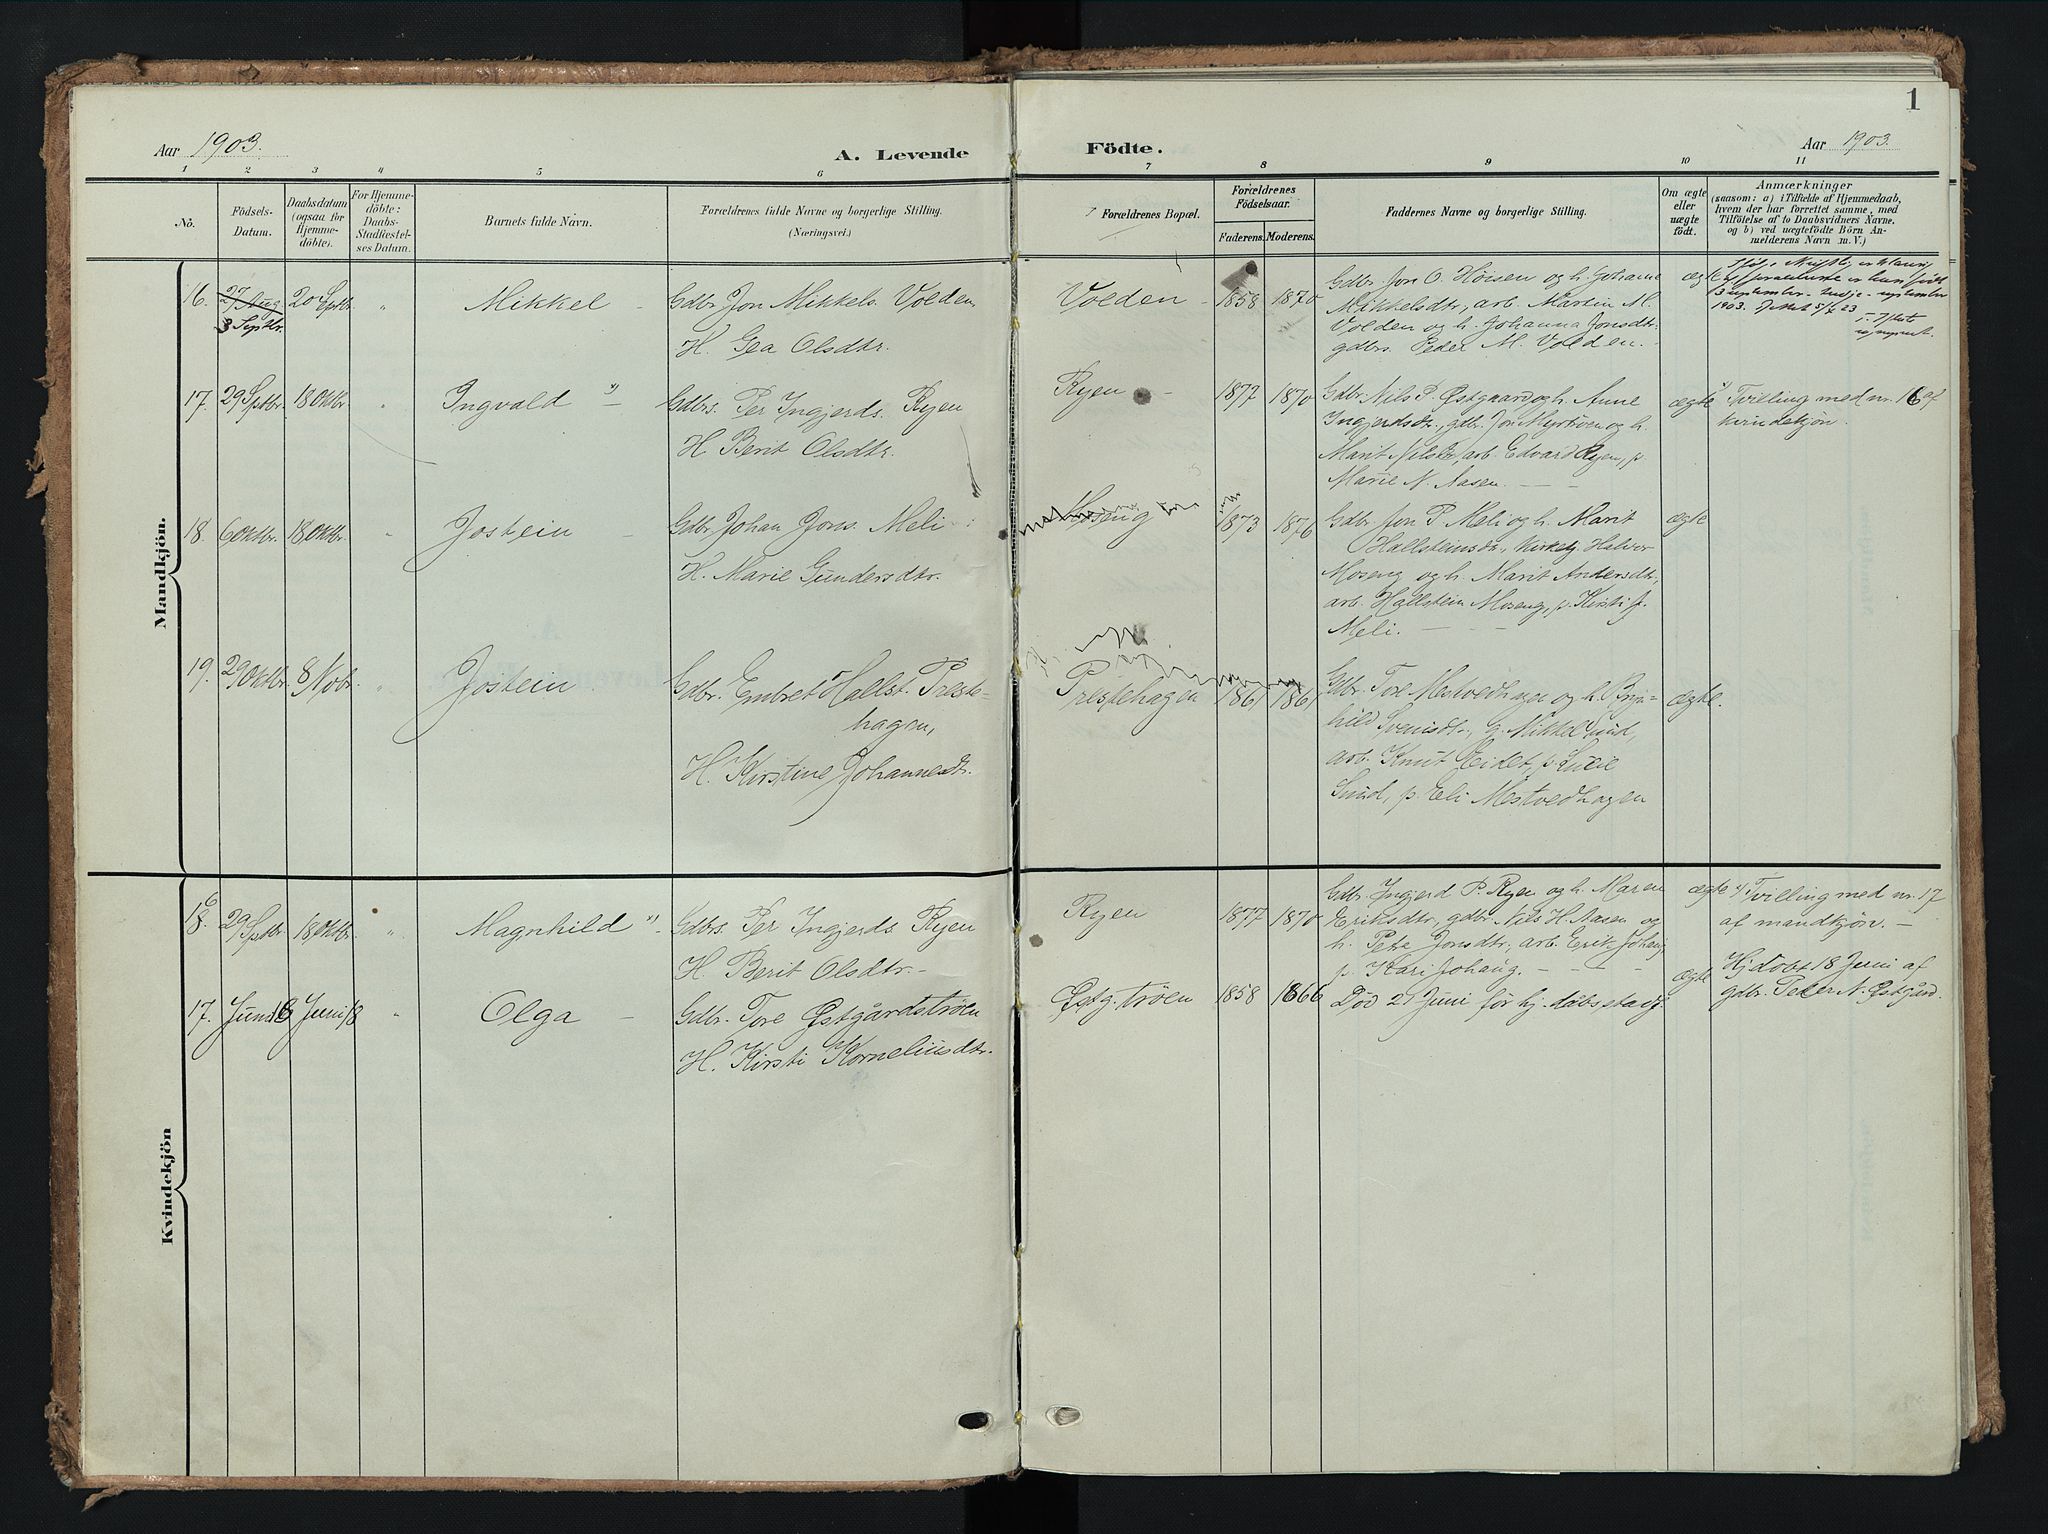 1
Aar 1903.
A. Levende
Födte.
Aar 1903.
1 2 3 4 5 6 7 8 9 10 11
No.
Födsels-
Datum.
Daabsdatum
(ogsaa for
Hjemme-
döbte).
For Hjemme-
döbte:
Daabs-
Stadfæstel-
ses Datum.
Barnets fulde Navn.
Forældrenes fulde Navne og borgerlige Stilling.
(Næringsvei.)
Forældrenes Bopæl.
Forældrenes
Födselsaar.
Faderens. Moderens.
Faddernes Navne og borgerlige Stilling.
Om ægte
eller
uægte
födt.
Anmærkninger
(saasom: a) i Tilfælde af Hjemmedaab,
hvem der har forrettet samme, med
Tilföielse af to Daabsvidners Navne.
og b) ved uægtefödte Börn An-
melderens Navn m. V.)
Mandkjön.
16. 27 Aug 20 Septbr. " Mikkel - Gdbr. Jon Mikkels. Volden
3 Septbr.
H. Gea Olsdtr.
Volden - 1858 1870
Gdbr. Jon O. Höisen og h. Johanne
Mikkelsdtr., arb. Martin M.
Volden og h. Johanna Jonsdtr.
gdbrs. Peder M. Volden.
ægte
3 september
1903.
17. 29 Septbr. 18 Oktbr. " Ingvald Gdbrs. Per Ingjerds. Ryen
H Berit Olsdtr.
Ryen - 1877 1870
Gdbr. Nils P. Østgaard og h. Anne
Ingjerdsdtr., gdbr. Jon Myrtröen og h.
Marit Nilsdtr., arb. Edvard Ryen, p.
Marie N. Aasen.
ægte Tvilling med nr. 16 af
kvindekjön.
18. 6 Oktbr. 18 Oktbr. " Jostein - Gdbr. Johan Jons. Meli
H. Marie Gundersdtr.
Moseng 1873 1876
Gdbr. Jon P. Meli og h. Marit
Hallsteinsdtr., Kirketj. Halvor
Moseng og h. Marit Andersdtr.,
arb. Hallstein Moseng, p. Kirsti J.
Meli.
ægte
19. 29 Oktbr. 8 Novbr. " Jostein Gdbr. Embret Hallst. Preste-
hagen,
H. Kirstine Johannesdtr.
Prestehagen 1861 1861
Gdbr. Tore Mestvedhagen og h. Bryn-
hild Svensdtr., g. Mikkel Lund,
arb. Knut Eidet, p.
p. Eli Mestvedhagen
ægte.
Kvindekjön
16 29 Septbr. 18 Oktbr. " Magnhild Gdbrs. Per Ingjerds. Ryen
H. Berit Olsdtr.-
Ryen 1877 1870
Gdbr. Ingjerd P. Ryen og h. Maren
Eriksdtr., gdbr. Nils H. Aasen og
h. Jonsdtr., arb. Erik Johaug,
p. Kari Johaug.
ægte Tvilling med nr. 17
af mandkjön. -
17. Juni 16 Juni 18 " Olga - Gdbr. Tore Østgårdströen
H. Kirsti Korneliusdtr.
Østg.tröen 1858 1866 Död 21 Juni för hj. dåbs
ægte Hj.döbt 18 Juni af
gdbr. Peter N. Østgård.